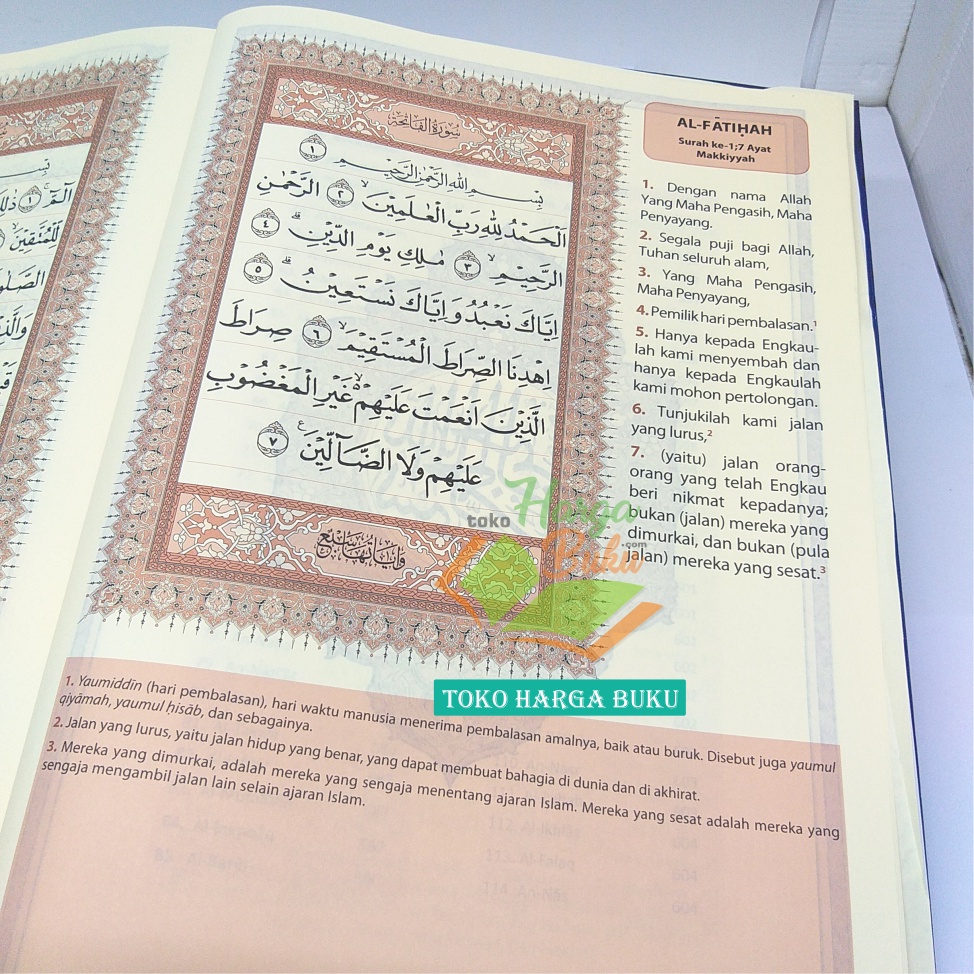 سورة الفاتحة
بِسْمِ اللهِ الرَّحْمٰنِ الرَّحِيْمِ ١
اَلْحَمْدُ لِلّٰهِ رَبِّ الْعٰلَمِيْنَۙ ٢ الرَّحْمٰنِ
الرَّحِيْمِۙ ٣ مٰلِكِ يَوْمِ الدِّيْنِۗ ٤
اِيَّاكَ نَعْبُدُ وَاِيَّاكَ نَسْتَعِيْنُۗ ٥
اِهْدِنَا الصِّرَاطَ الْمُسْتَقِيْمَۙ ٦ صِرَاطَ
الَّذِيْنَ اَنْعَمْتَ عَلَيْهِمْ ەۙ غَيْرِ الْمَغْضُوْبِ
عَلَيْهِمْ وَلَا الضَّاۤلِّيْنَࣖ ٧
وآياتها سبع
AL-FĀTIḤAH
Surah ke-1;7 Ayat
Makkiyyah
1. Dengan nama Allah
Yang Maha Pengasih, Maha
Penyayang.
2. Segala puji bagi Allah,
Tuhan seluruh alam,
3. Yang Maha Pengasih,
Maha Penyayang,
4. Pemilik hari pembalasan.¹
5. Hanya kepada Engkau-
lah kami menyembah dan
hanya kepada Engkaulah
kami mohon pertolongan.
6. Tunjukilah kami jalan
yang lurus,²
7. (yaitu) jalan orang-
orang yang telah Engkau
beri nikmat kepadanya;
bukan (jalan) mereka yang
dimurkai, dan bukan (pula
jalan) mereka yang sesat.³
toko Harga
Buku.com
TOKO HARGA BUKU
1. Yaumiddīn (hari pembalasan), hari waktu manusia menerima pembalasan amalnya, baik atau buruk. Disebut juga yaumul
qiyāmah, yaumul ḥisāb, dan sebagainya.
2. Jalan yang lurus, yaitu jalan hidup yang benar, yang dapat membuat bahagia di dunia dan di akhirat.
3. Mereka yang dimurkai, adalah mereka yang sengaja menentang ajaran Islam. Mereka yang sesat adalah mereka yang
sengaja mengambil jalan lain selain ajaran Islam.
112. Al-Ikhlāṣ 604
113. Al-Falaq 604
114. An-Nās 604